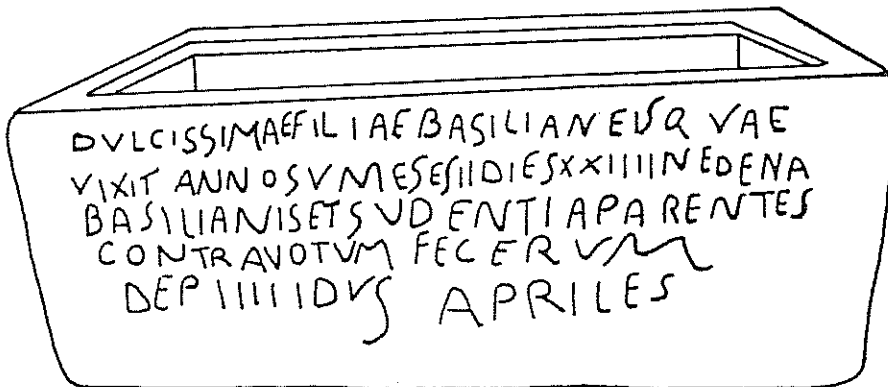 DVLCISSIMAEFILIAEBASILIANEUSQVAE
VIXIT ANNOSVMESESIIDIESXXIIIINEDENA
BASILIANISETSVDENTIAPARENTES
CONTRAVOTVM FECERVM
DEPIIIIIDVS APRILES